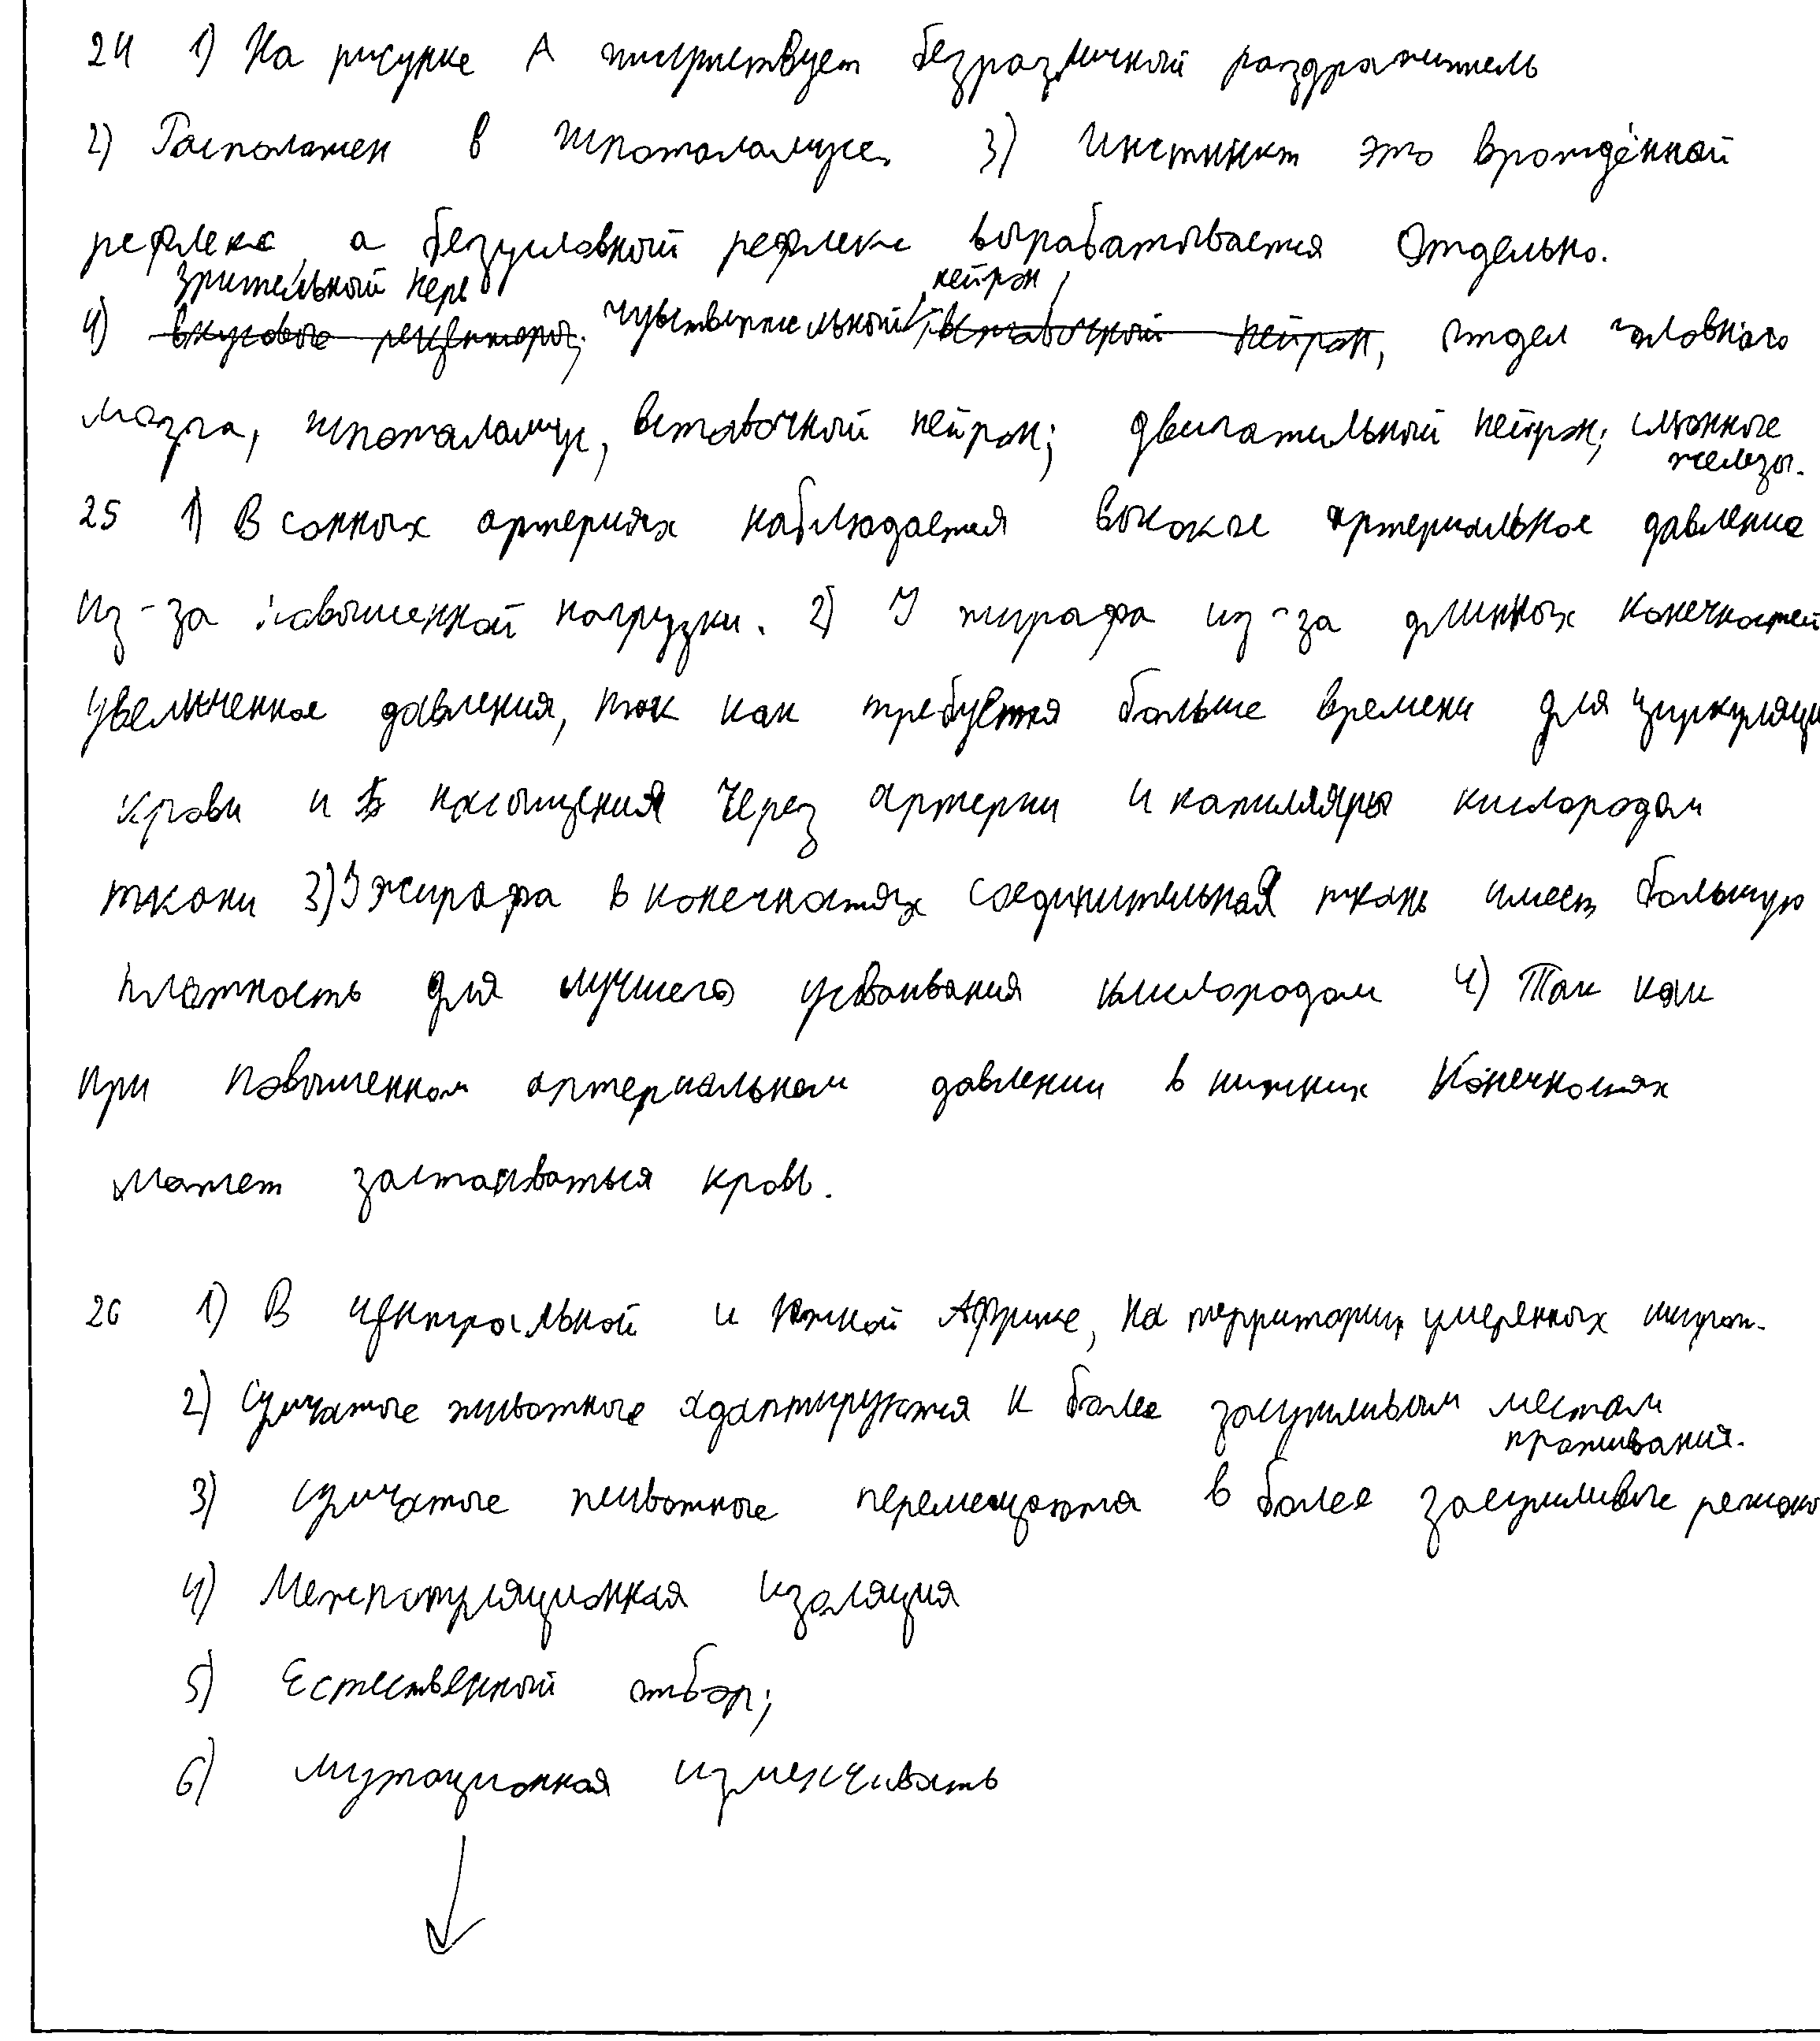 24 1) На рисунке А присутствует безразличный раздражитель
2) Расположен в гипоталамусе. 3) Инстинкт это врождённый
рефлекс, а безусловный рефлекс вырабатывается отдельно.
зрительный нерв нейрон
4) вкусовые рецепторы; чувствительный вставочный нейрон, отдел головного
мозга, гипоталамус, вставочный нейрон; двигательный нейрон; слюнные
железы.
25 1) В сонных артериях наблюдается высокое артериальное давление
из-за повышенной нагрузки. 2) У жирафа из-за длинных конечностей
увеличенное давления, так как требуется больше времени для циркуляци
крови и насыщения через артерии и капилляры кислородом
ткани 3) У жирафа в конечностях соединительная ткань имеет большую
плотность для лучшего усваивания кислородом 4) Так как
при повышенном артериальном давлении в нижних конечностях
может застаиваться кровь.
26 1) В центральной и южной Африке, на территории умеренных широт.
2) Сумчатые животные адаптируются к более засушливым местам
проживания.
3) Сумчатые животные перемещаются в более засушливые регионы
4) Межпопуляционная изоляция
5) Естественный отбор;
6) Мутационная изменчивость